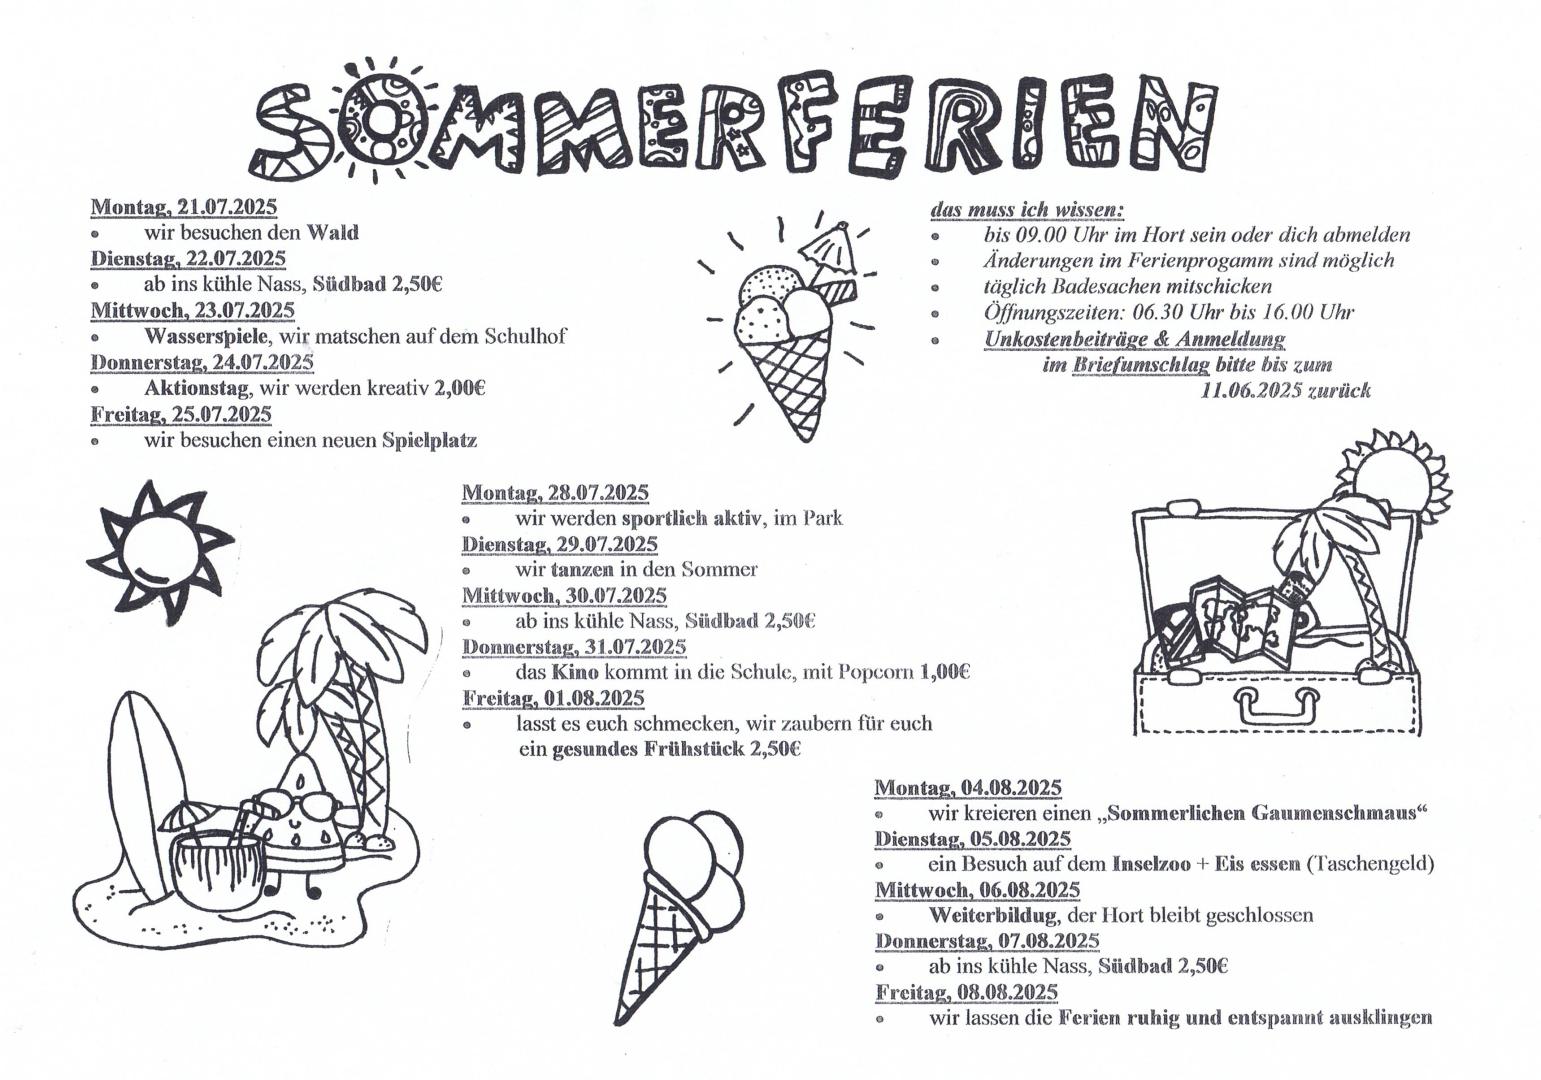 SOMMERFERIEN
Montag, 21.07.2025
• wir besuchen den Wald
Dienstag, 22.07.2025
• ab ins kühle Nass, Südbad 2,50€
Mittwoch, 23.07.2025
• Wasserspiele, wir matschen auf dem Schulhof
Donnerstag, 24.07.2025
• Aktionstag, wir werden kreativ 2,00€
Freitag, 25.07.2025
• wir besuchen einen neuen Spielplatz
das muss ich wissen:
• bis 09.00 Uhr im Hort sein oder dich abmelden
• Änderungen im Ferienprogamm sind möglich
• täglich Badesachen mitschicken
• Öffnungszeiten: 06.30 Uhr bis 16.00 Uhr
• Unkostenbeiträge & Anmeldung
im Briefumschlag bitte bis zum
11.06.2025 zurück
Montag, 28.07.2025
• wir werden sportlich aktiv, im Park
Dienstag, 29.07.2025
• wir tanzen in den Sommer
Mittwoch, 30.07.2025
• ab ins kühle Nass, Südbad 2,50€
Donnerstag, 31.07.2025
• das Kino kommt in die Schule, mit Popcorn 1,00€
Freitag, 01.08.2025
• lasst es euch schmecken, wir zaubern für euch
ein gesundes Frühstück 2,50€
Montag, 04.08.2025
• wir kreieren einen „Sommerlichen Gaumenschmaus“
Dienstag, 05.08.2025
• ein Besuch auf dem Inselzoo + Eis essen (Taschengeld)
Mittwoch, 06.08.2025
• Weiterbildug, der Hort bleibt geschlossen
Donnerstag, 07.08.2025
• ab ins kühle Nass, Südbad 2,50€
Freitag, 08.08.2025
• wir lassen die Ferien ruhig und entspannt ausklingen